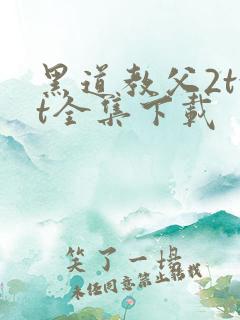 黑道教父2tx
t全集下载
笑了一场
未经同意禁止转载